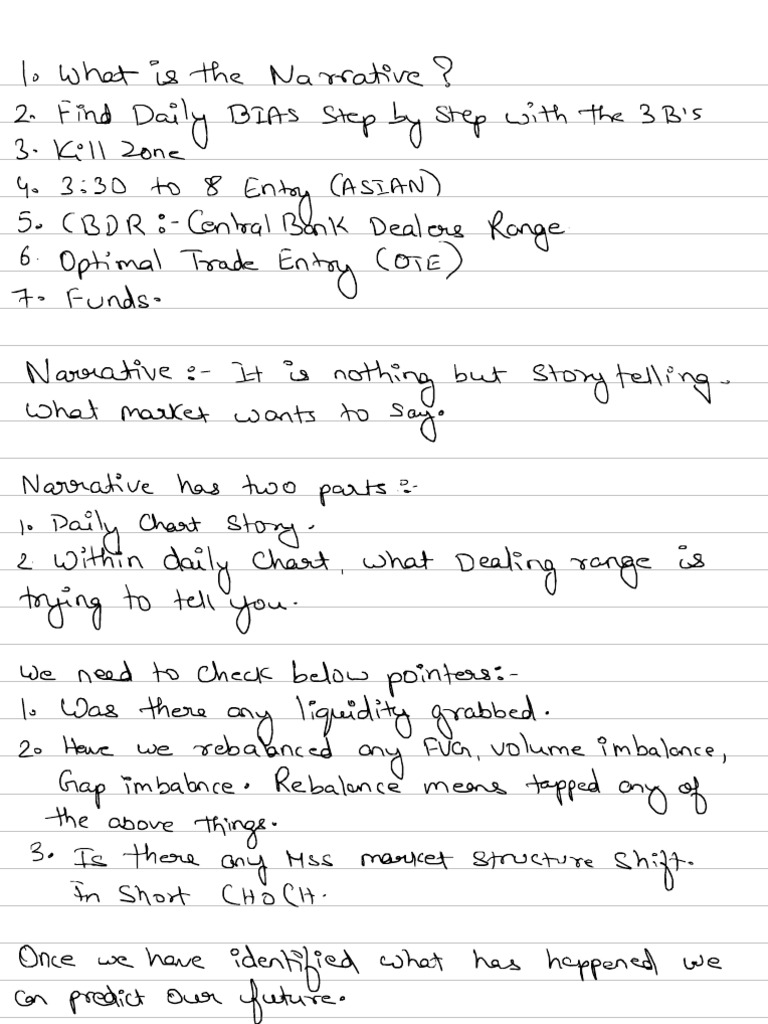 1. What is the Narrative?
2. Find Daily BIAS Step by Step with the 3 B's
3. Kill Zone
4. 3:30 to 8 Entry (ASIAN)
5. CBDR :- Central Bank Dealers Range
6. Optimal Trade Entry (OTE)
7. Funds.
Narrative :- It is nothing but Story telling.
What market wants to say.
Narrative has two parts :-
1. Daily Chart Story.
2. Within daily Chart, what Dealing range is
trying to tell you.
We need to check below pointers:-
1. Was there any liquidity grabbed.
2. Have we rebalanced any FVG, volume imbalance,
Gap imbalnce. Rebalence means tapped any of
the above things.
3. Is there any MSS market structure Shift.
In Short CHOCH.
Once we have identified what has happened we
can predict our future.